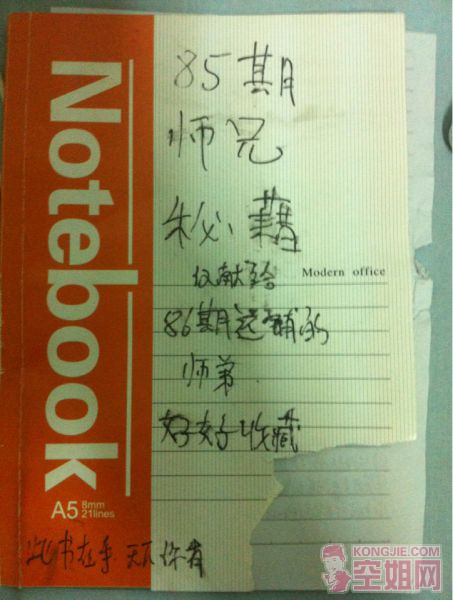 Notebook
A5 8mm
21lines
85期
师兄
秘籍
仅献给
Modern office
86期
师弟
好好收藏
此书在手 天下你有
KONGJIE.COM
空姐网